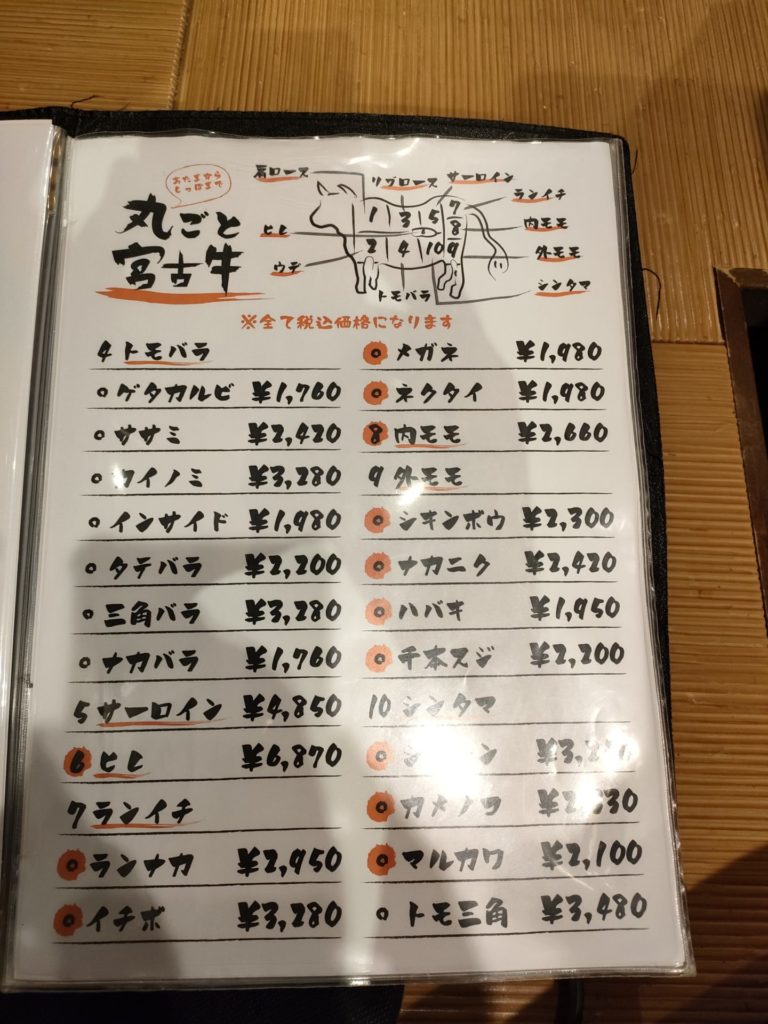 あたまから
しっぽまで
丸ごと
宮古牛
肩ロース
リブロース
サーロイン
ランイチ
ヒレ
内モモ
ウデ
外モモ
トモバラ
シンタマ
1 3 5 7
8
2 4 10 9
※全て税込価格になります
4 トモバラ
ゲタカルビ ¥1,760
ササミ ¥2,420
カイノミ ¥3,280
インサイド ¥1,980
タテバラ ¥2,200
三角バラ ¥3,280
ナカバラ ¥1,760
5 サーロイン ¥4,850
6 ヒレ ¥6,870
7 ランイチ
ランナカ ¥2,950
イチボ ¥3,280
メガネ ¥1,980
ネクタイ ¥1,980
8 内モモ ¥2,660
9 外モモ
シキンボウ ¥2,300
ナカニク ¥2,420
ハバキ ¥1,950
千本スジ ¥2,200
10 シンタマ
カメノコ
マルカワ ¥2,100
トモ三角 ¥3,480